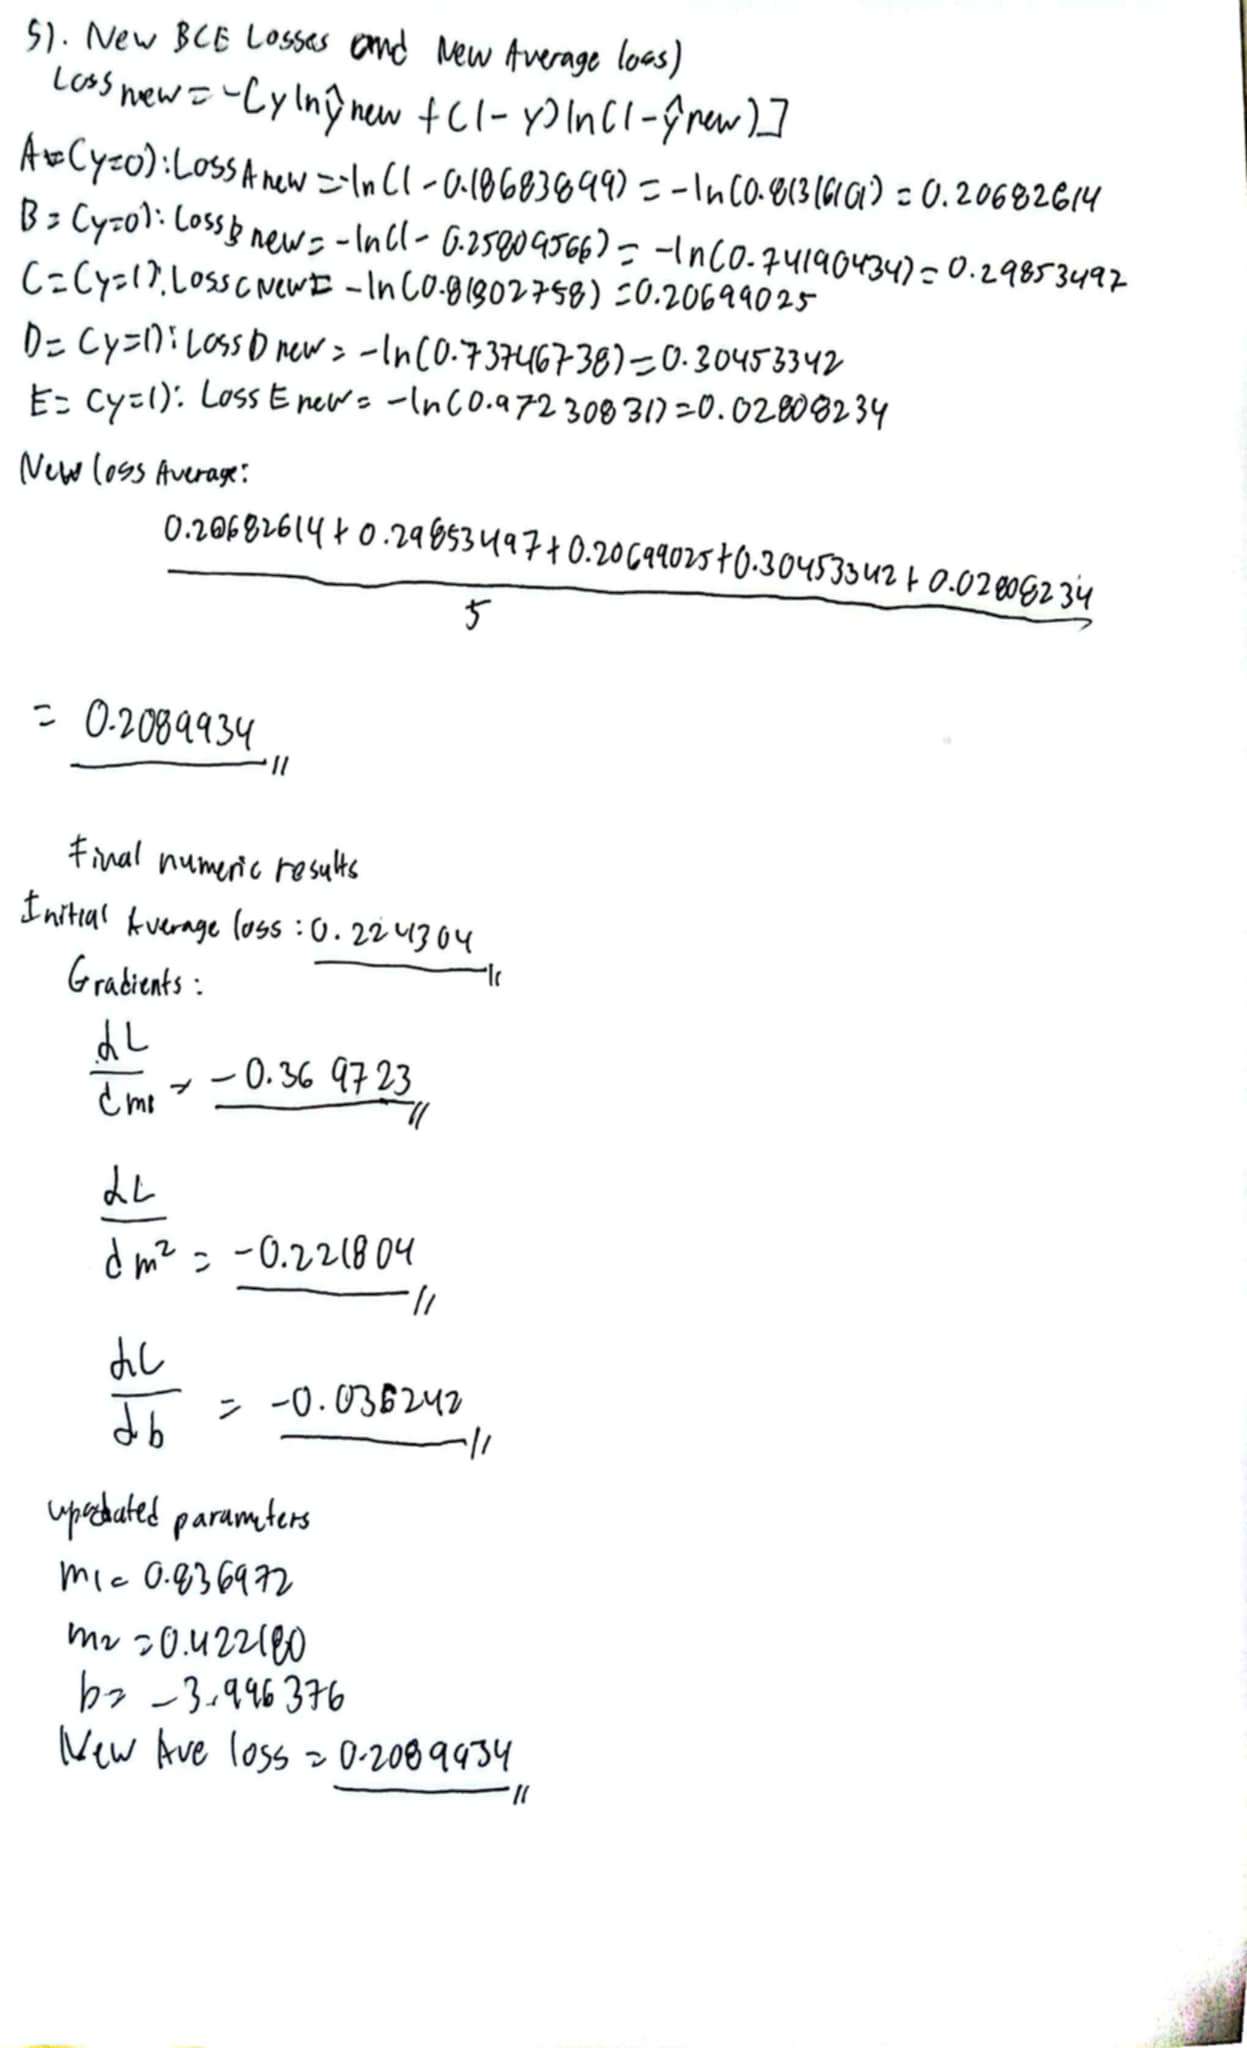 5). New BCE Losses and New Average loss)
Loss new = -[y ln ŷ new + (1 - y) ln (1 - ŷ new)]
A = (y=0): Loss A new = -ln (1 - 0.18683899) = -ln (0.81316101) = 0.20682614
B = (y=0): Loss B new = -ln (1 - 0.25809566) = -ln (0.74190434) = 0.29853497
C = (y=1): Loss C new = -ln (0.81302758) = 0.20699025
D = (y=1): Loss D new = -ln (0.73746738) = 0.30453342
E = (y=1): Loss E new = -ln (0.97230831) = 0.02808234
New loss Average:
0.20682614 + 0.29853497 + 0.20699025 + 0.30453342 + 0.02808234
5
= 0.2089934
Final numeric results
Initial Average loss : 0.224304
Gradients :
dL
dm1 = -0.369723
dL
dm2 = -0.221804
dL
db = -0.036242
updated parameters
m1 = 0.836972
m2 = 0.422180
b = -3.996376
New Ave loss = 0.2089934